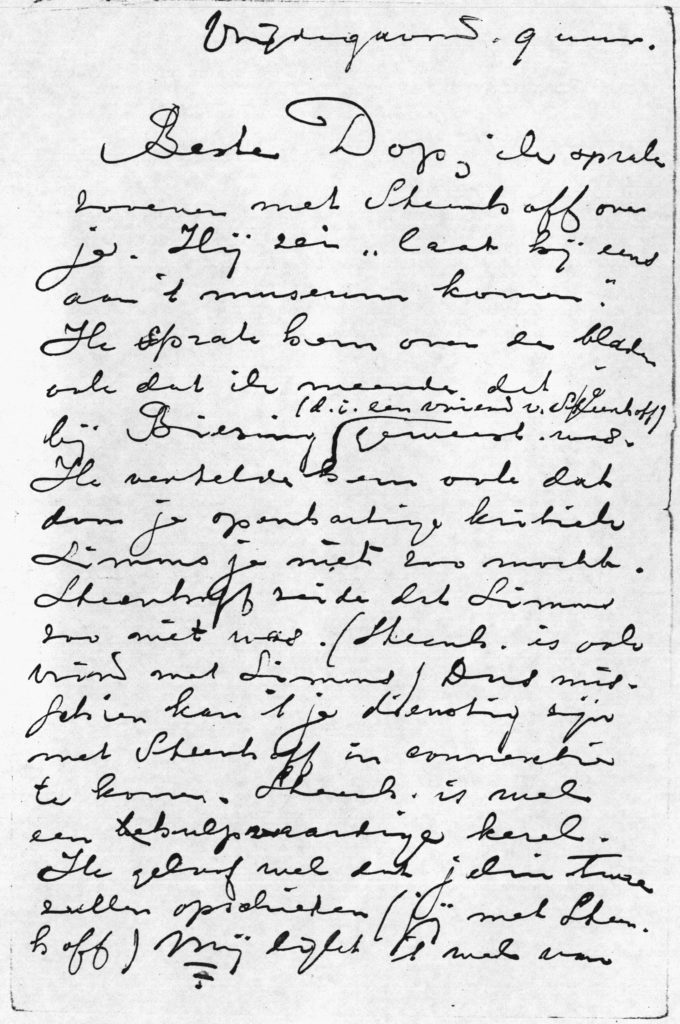 Vrijdagavond. 9 uur.
Beste Dop, ik sprak
zooeven met Steenhoff over
je. Hij zei „laat hij eens
aan 't museum komen".
Ik sprak hem over de bladen
ook dat ik meende dat je
(d.i. een vriend v. Steenhoff)
bij Biesing geweest was.
Ik vertelde hem ook dat
door je openhartige kritiek
Simons je niet zoo mocht.
Steenhoff zeide dat Simons
zoo niet was. (Steenh. is ook
vriend met Simons) Dus mis-
schien kan 't je dienstig zijn
met Steenhoff in connectie
te komen. Steenh. is wel
een behulpvaardige kerel.
Ik geloof wel dat jelui twee
zullen opschieten (jij met Steen-
hoff) Mij lijkt 't wel van